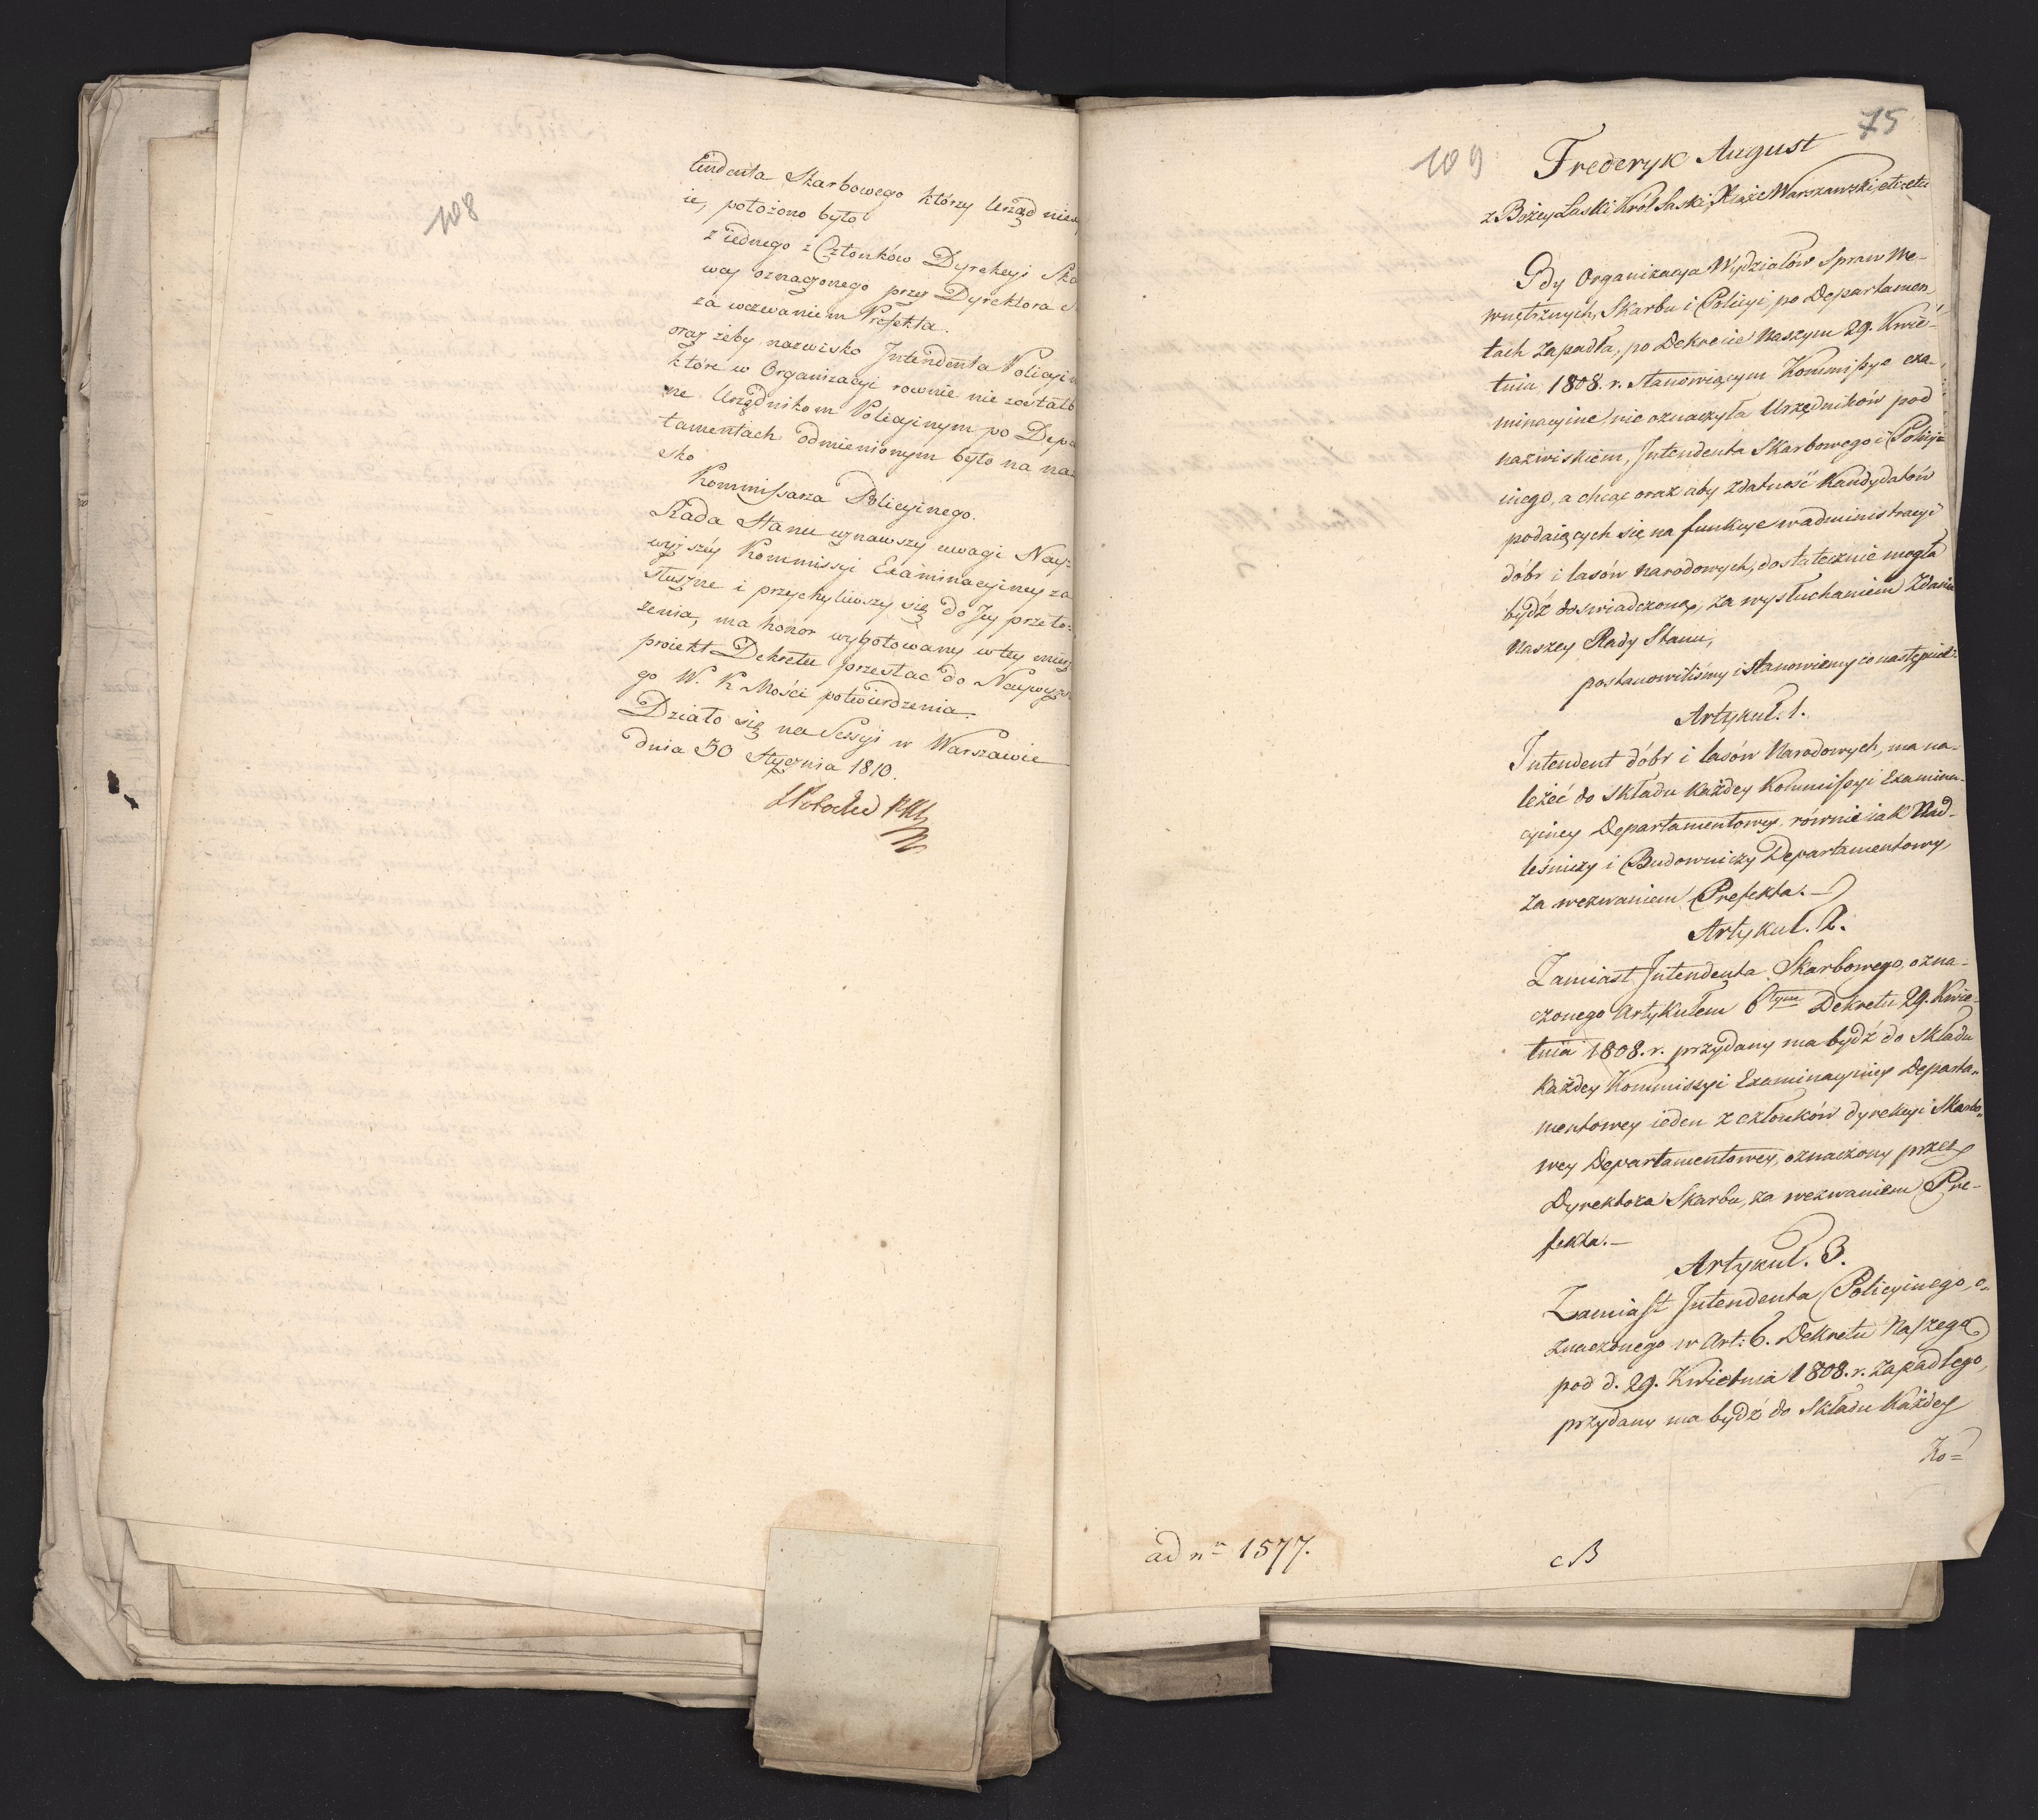 108
tendenta Skarbowego który Urząd nie
ie, położono było
z iednego z Członków Dyrekcyi Ska
wey oznaczonego przez Dyrektora
za wezwaniem Prefekta.
oraz żeby nazwisko Intendenta Policyi
które w Organizacyi rownie nie zostało
ne Urzędnikom Policyinym po Depa
tamentach odmienionym było na na
sko
Kommissarza Policyinego.
Rada Stanu uznawszy uwagi Nay=
wyższéy Kommissyi Examinacyiney za
słuszne i przychyliwszy się do Jey przeło=
żenia, ma honor wygotowany w tey mierz
proiekt Dekretu przesłać do Naywyższ
go W. K Mości potwierdzenia.
Działo się na Sessyi w Warszawie
dnia 30 Stycznia 1810.
109
75
Frederyk August
z Bożey Łaski Król Saski, Xiąże Warszawski, etc. etc.
Gdy Organizacya Wydziałów Spraw We-
wnętrznych, Skarbu i Policyi, po Departamen
tach zapadła, po Dekrecie Naszym 29. Kwie-
tnia 1808. r. stanowiącym Kommissye exa-
minacyine, nie oznaczyła Urzędników pod
nazwiskiem, Intendenta Skarbowego i Policyi=
inego, a chcąc oraz aby zdatność Kandydatów
podaiących się na funkcye w administracyi
dóbr i lasów narodowych, dostatecznie mogła
bydź doswiadczoną, za wysłuchaniem Zdania
Naszey Rady Stanu,
postanowiliśmy i stanowiemy co następuie:
Artykuł. 1.
Intendent dóbr i lasów Narodowych, ma na-
leżeć do składu każdey Kommissyi Examina-
cyiney Departamentowey, równie iak Nad-
leśniczy i Budowniczy Departamentowy,
za wezwaniem Prefekta. —
Artykuł. 2.
Zamiast Intendenta Skarbowego, ozna-
czonego Artykułem 6tym Dekretu 29. Kwie-
tnia 1808. r. przydany ma bydź do składu
każdey Kommissyi Examinacyiney Departa-
mentowey ieden z członków dyrekcyi Skarbo=
wey Departamentowey, oznaczony przez
Dyrektora Skarbu, za wezwaniem Pre-
fekta. —
Artykuł. 3.
Zamiast Intendenta Policyinego, o=
znaczonego w Art: 6. Dekretu Naszego
pod d. 29. Kwietnia 1808. r. zapadłego,
przydany ma bydź do składu każdey
Ko=
ad nr 1577.